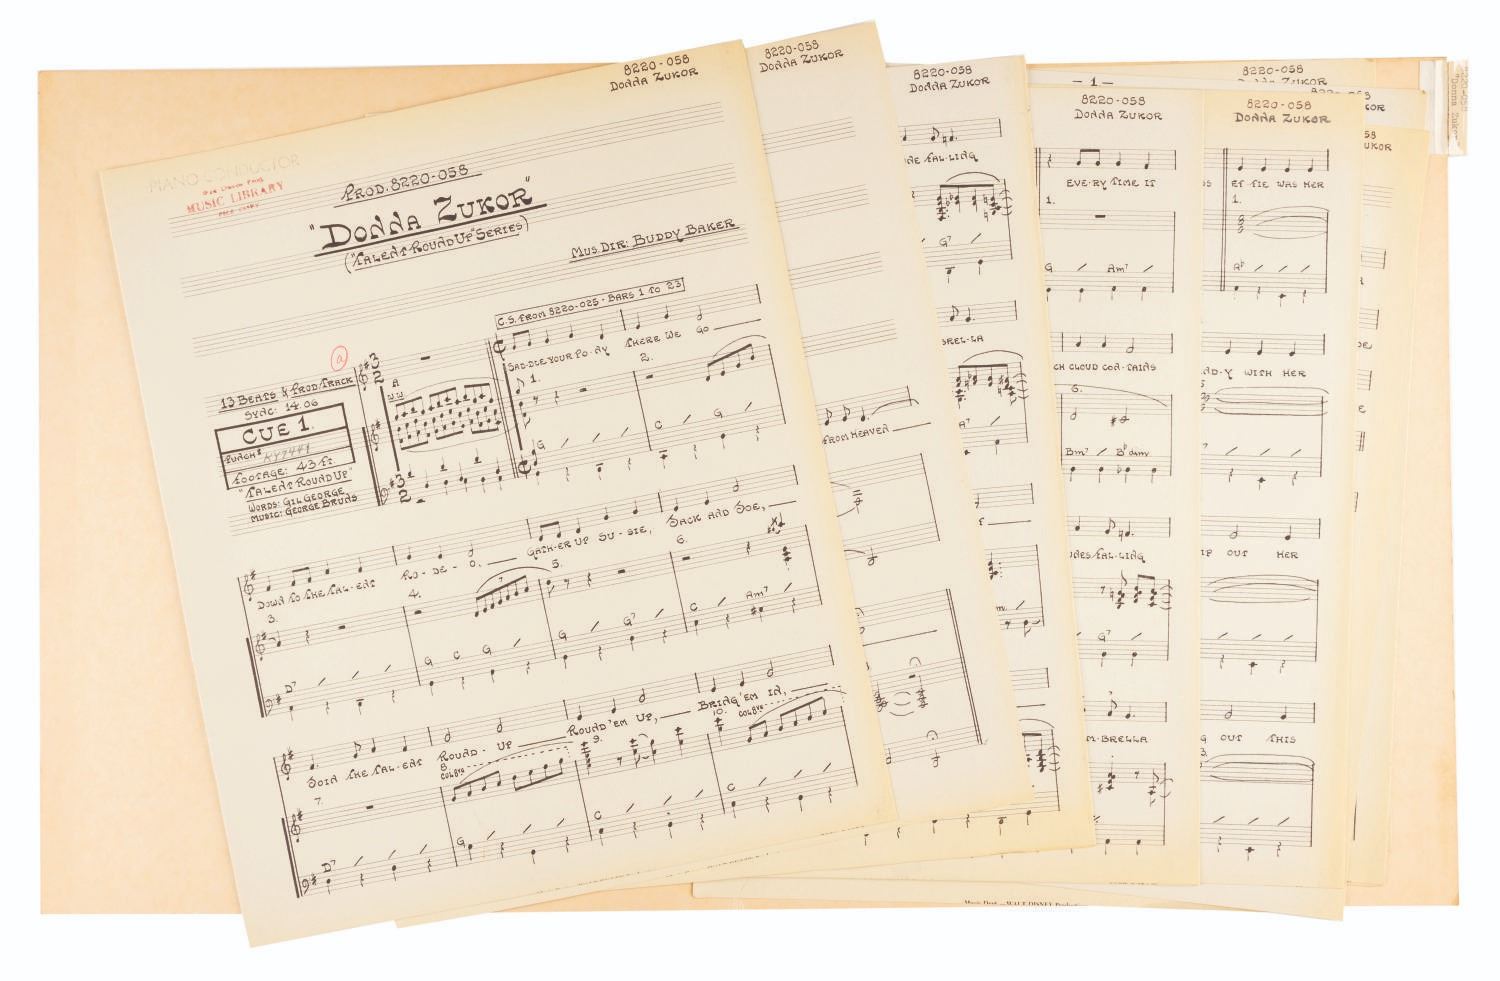 8220-058
DONNA ZUKOR
PIANO CONDUCTOR
MUSIC LIBRARY
PROD. 8220-058
"DONNA ZUKOR"
("TALENT ROUND UP" SERIES)
MUS. DIR: BUDDY BAKER
C.S. FROM 8220-025 - BARS 1 TO 23
a
13 BEATS PROD. TRACK
SYNC: 14.06
CUE 1.
PUNCH# KY7441
FOOTAGE: 43 FT
"TALENT ROUND UP"
WORDS: GIL GEORGE
MUSIC: GEORGE BRUNS
3 2
A
W.W.
SAD-DLE YOUR PO-NY THERE WE GO
1. 2.
G C G
3 2
DOWN TO THE TAL-ENT RO-DE-O, GATH-ER UP SU-SIE, JACK AND JOE,
3. 4. 5. 6.
7
D7 G C G G G7 C Am7
JOIN THE TAL-ENT ROUND-UP ROUND 'EM UP, BRING 'EM IN,
7. 8. 9. 10.
COL 8va COL 8va
D7 G C C
8220-058
DONNA ZUKOR
FROM HEAVEN
8220-058
DONNA ZUKOR
FAL-LING
G7
BREL-LA
A7
- 1 -
8220-058
DONNA ZUKOR
EVE-RY TIME IT
1.
G Am7
CH CLOUD CON-TAINS
6.
Bm7 Bb dim
FAL-LING
G7
M-BRELLA
8220-058
8220-058
DONNA ZUKOR
ET-TIE WAS HER
1.
WITH HER
OUT HER
OUT THIS
Music Dept. — WALT DISNEY